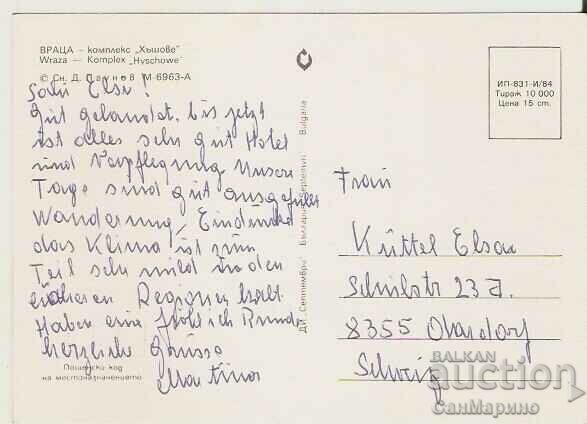 ВРАЦА – комплекс „Хъшове"
Wraza – Komplex „Hyschowe"
© Сн. Д. М 6963-А
Elsa!
Gut gelandet, bis jetzt
ist alles sehr gut Hotel
und Verpflegung Unsere
Tage sind gut ausgefüllt
Wanderung,
das Klima ist zum
Teil sehr mild in den
Regionen
Haben eine fröhlich Runde
herzliche Grüsse
Martina
Пощенски код
на местоназначението
ДИ „Септември" България Septemvri Bulgaria
ИП-831-И/84
Тираж 10 000
Цена 15 ст.
Frau
Küttel Elsa
Schulstr 23 a.
8355 Oberdorf
Schweiz
BALKAN
auction
СанМарино